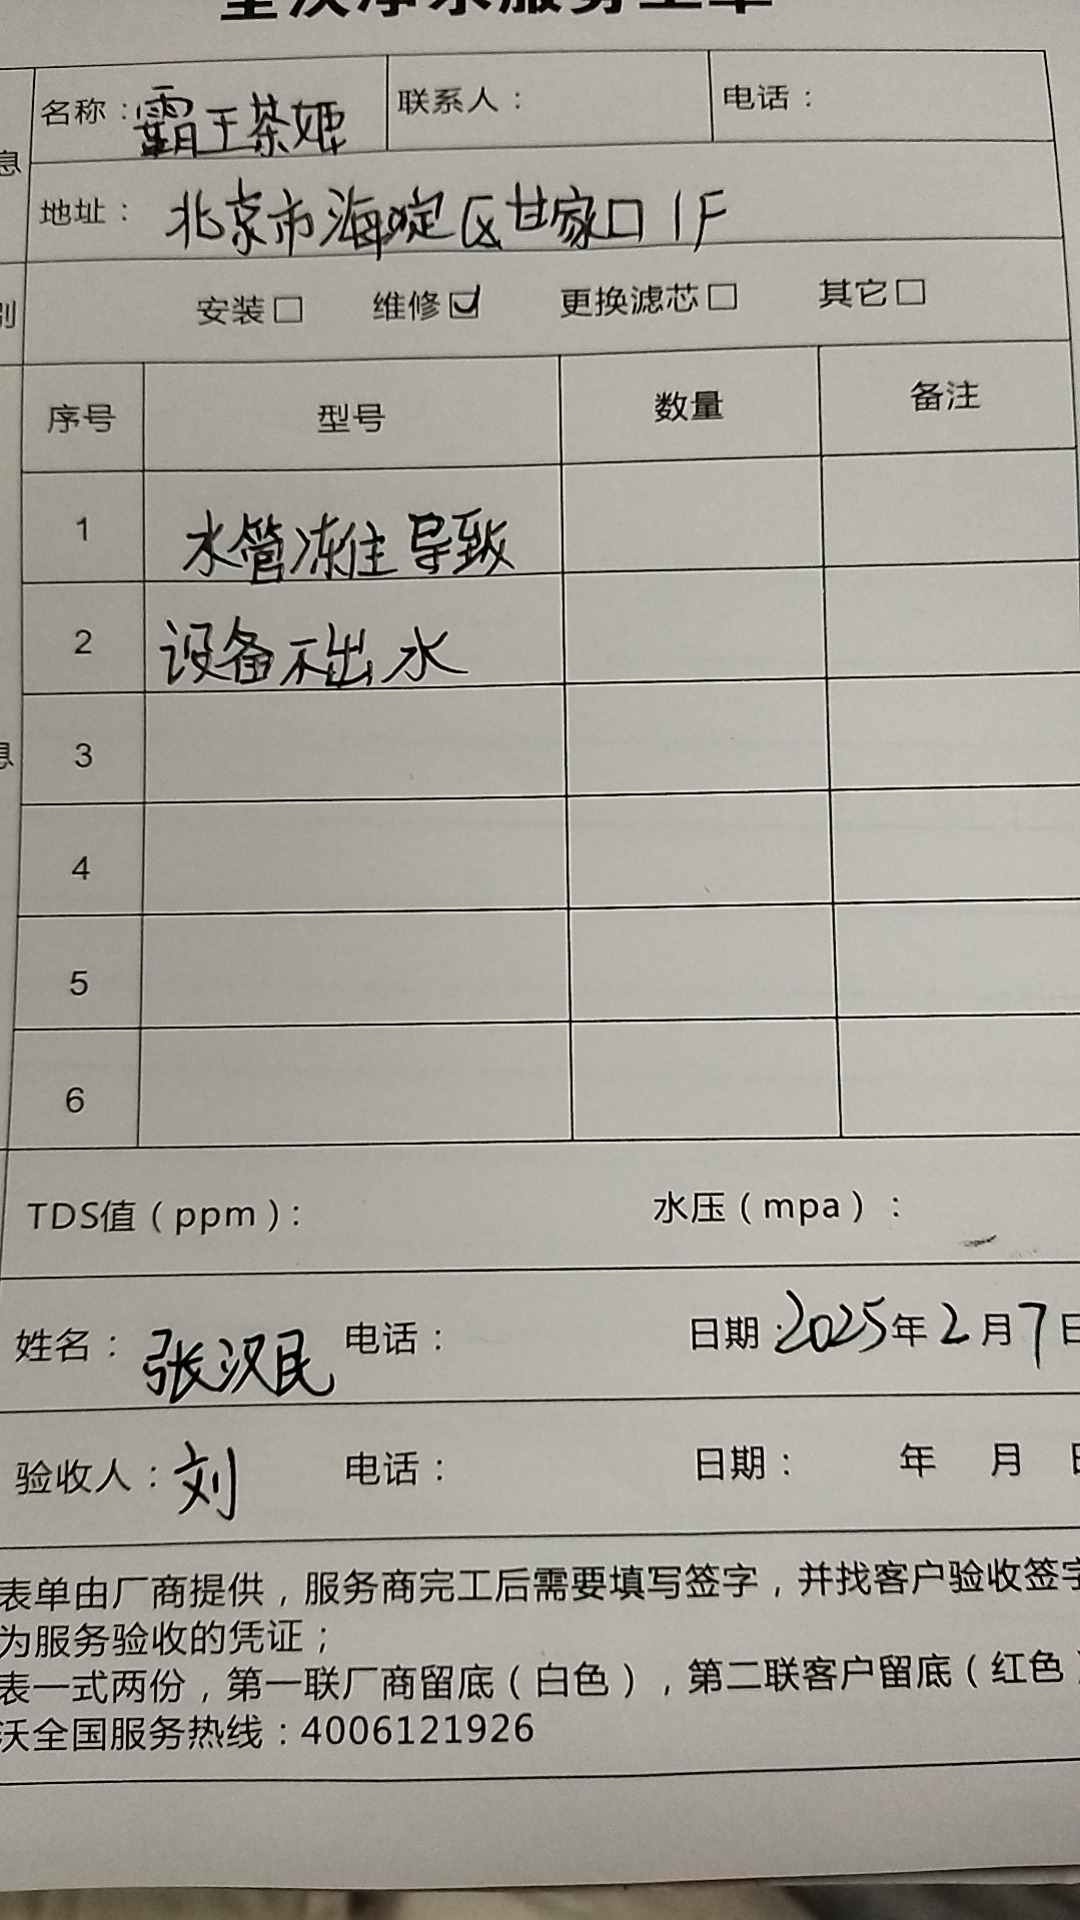 净水服务工单
息
名称：霸王茶姬 联系人： 电话：
地址： 北京市海淀区甘家口1F
别 安装□ 维修☑ 更换滤芯□ 其它□
序号 型号 数量 备注
1 水管冻住导致
2 设备不出水
息 3
4
5
6
TDS值（ppm）： 水压（mpa）：
姓名：张汉民 电话： 日期：2025年2月7日
验收人：刘 电话： 日期： 年 月 日
表单由厂商提供，服务商完工后需要填写签字，并找客户验收签字
为服务验收的凭证；
表一式两份，第一联厂商留底（白色），第二联客户留底（红色）
沃全国服务热线：4006121926